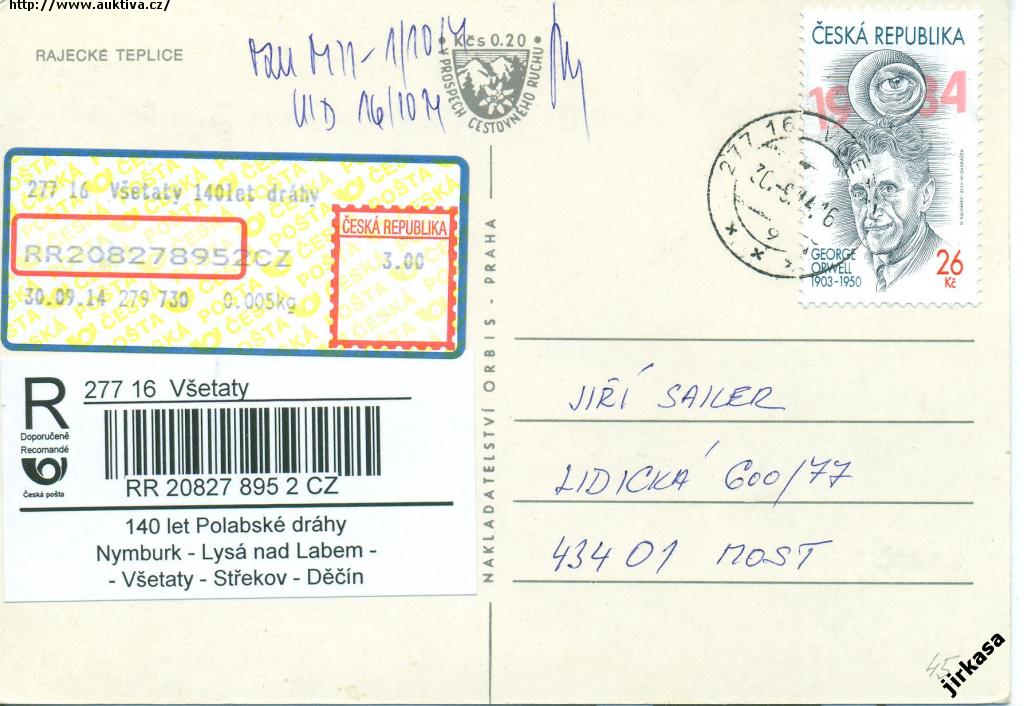 http://www.auktiva.cz/
RAJECKÉ TEPLICE
1/10
16/10
Kčs 0.20
V PROSPĚCH CESTOVNÉHO RUCHU
ČESKÁ REPUBLIKA
1984
GEORGE
ORWELL
1903-1950
26
Kč
277 16
277 16 Všetaty 140let dráhy
RR208278952CZ
30.09.14 279 730 0.005kg
ČESKÁ REPUBLIKA
3.00
ČESKÁ POŠTA
R
Doporučeně
Recomandé
Česká pošta
277 16 Všetaty
RR 20827 895 2 CZ
140 let Polabské dráhy
Nymburk - Lysá nad Labem -
- Všetaty - Střekov - Děčín
NAKLADATELSTVÍ ORBIS - PRAHA
JIŘÍ SAILER
LIDICKÁ 600/77
434 01 MOST
45
jirkasa